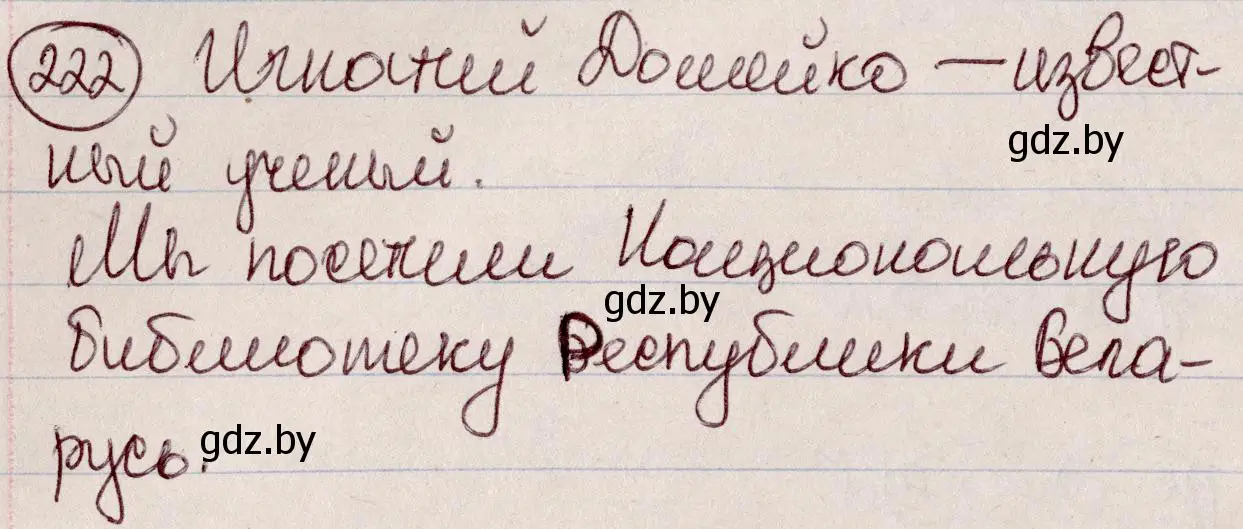 222 Игнатий Домейко — извест-
gdz.by
ный ученый.
Мы посетили Национальную
gdz.by
библиотеку Республики Бела-
gdz.by
русь.